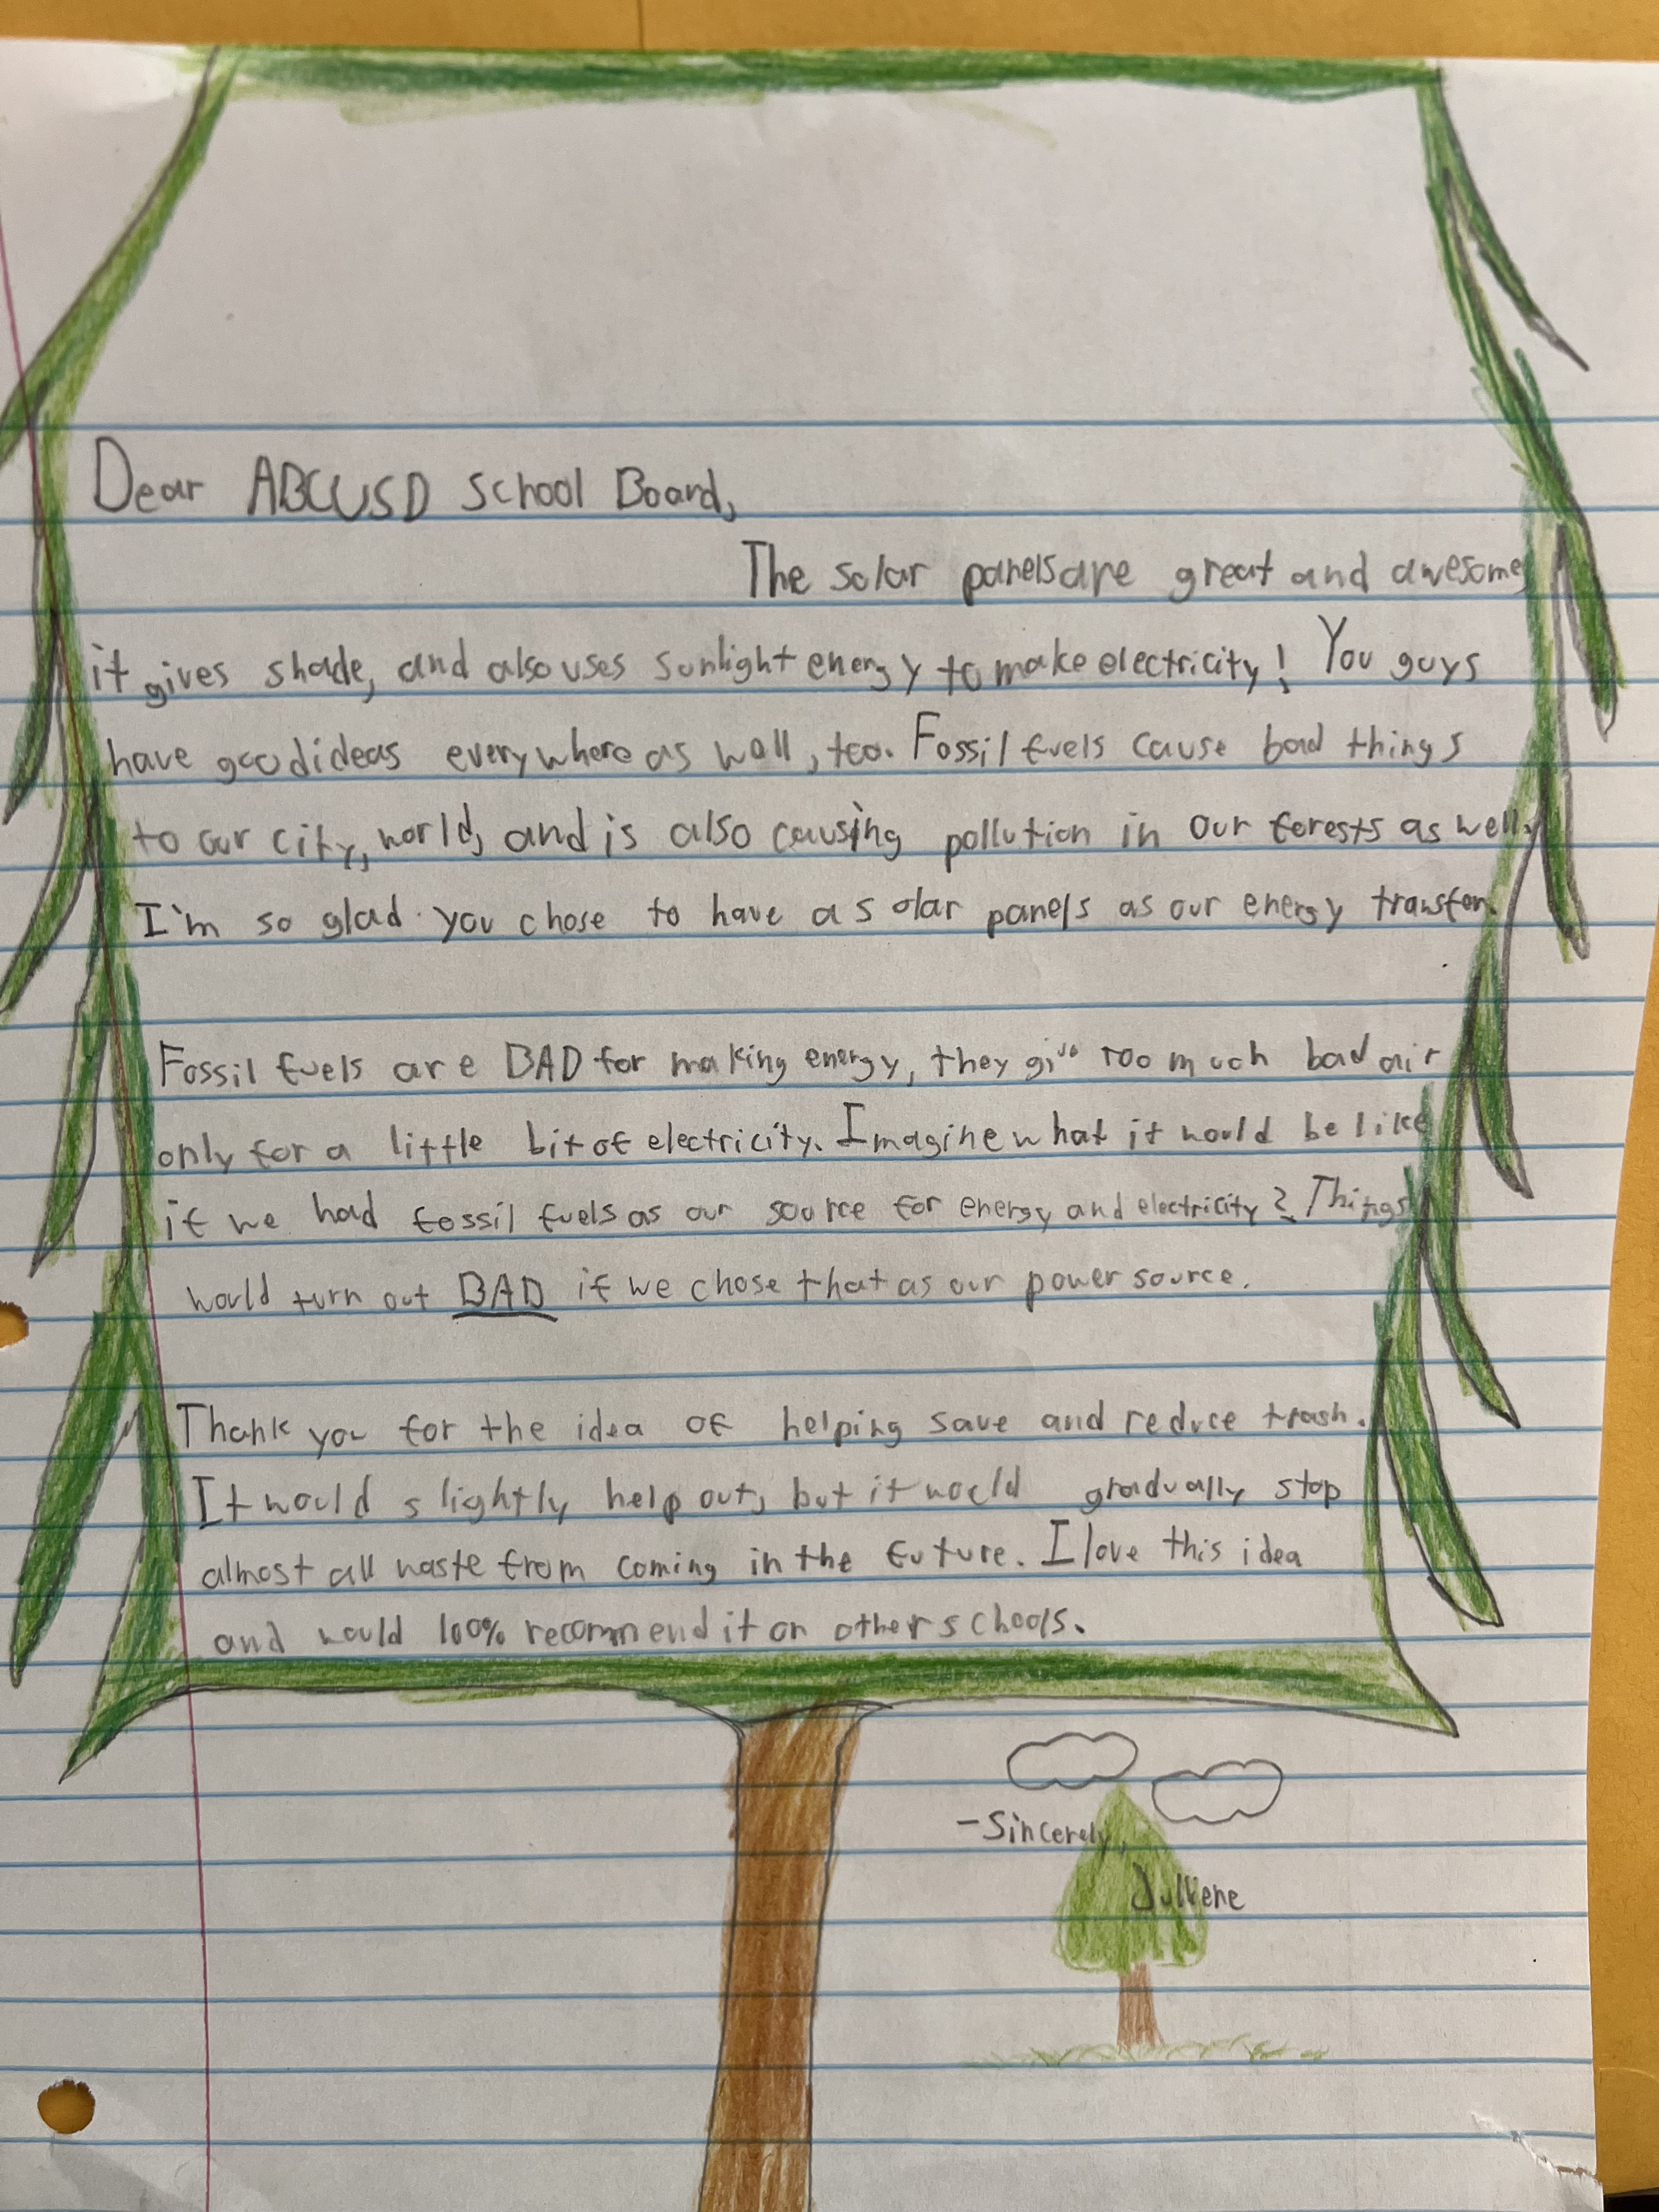 Dear ABCUSD School Board,
The solar panels are great and awesome
it gives shade, and also uses sunlight energy to make electricity! You guys
have good ideas everywhere as well, too. Fossil fuels cause bad things
to our city, world, and is also causing pollution in our forests as well.
I'm so glad you chose to have a solar panels as our energy transfer.
Fossil fuels are BAD for making energy, they give too much bad air
only for a little bit of electricity. Imagine what it would be like
if we had fossil fuels as our source for energy and electricity? Things
would turn out BAD if we chose that as our power source.
Thank you for the idea of helping save and reduce trash.
It would slightly help out, but it would gradually stop
almost all waste from coming in the future. I love this idea
and would 100% recommend it on other schools.
-Sincerely,